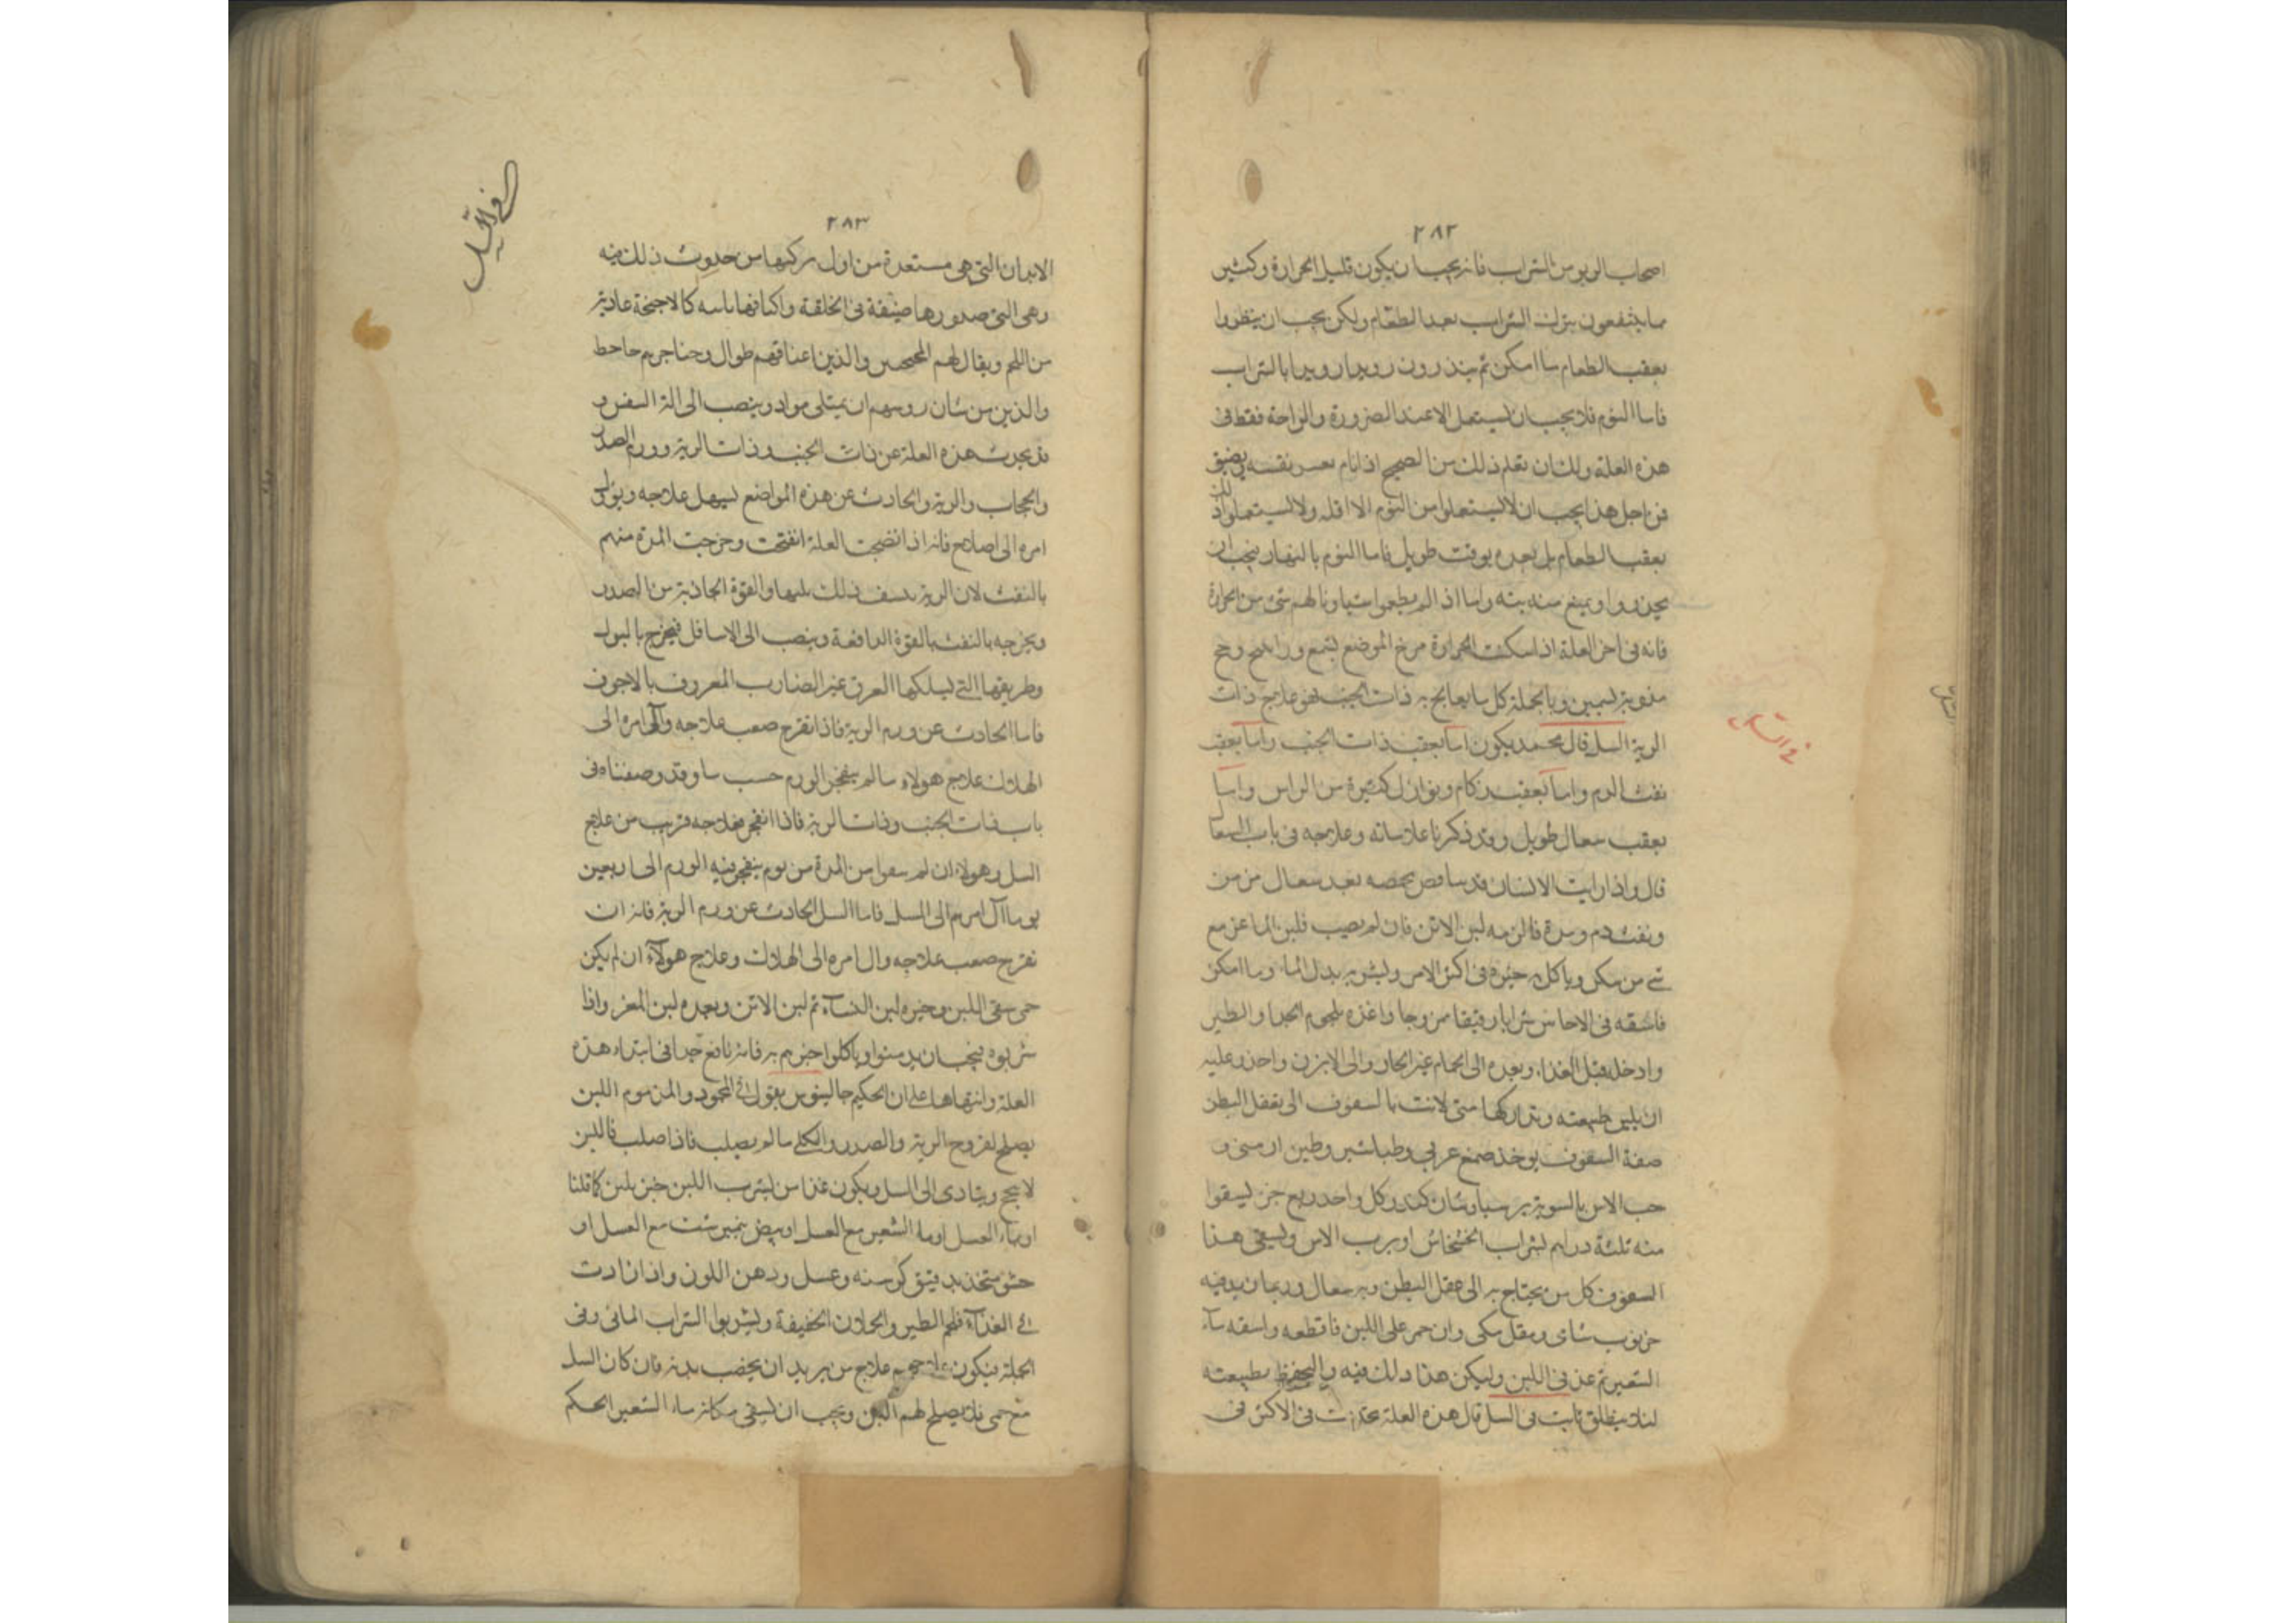 ٢٨٢
اصحاب الربو من الشراب فانه يجب ان يكون قليل الحرارة وكثير
ما ينتفعون بترك الشراب بعد الطعام ولكن يجب ان ينظروا
بعقب الطعام ما امكن ثم رويدا رويدا بالشراب
فاما النوم فلا يجب ان يستعمل الا عند الضرورة والراحة فقط في
هذه العلة ولك ان تعلم ذلك من الصحيح اذا نام نفسه ويضيق
فمن اجل هذا يجب ان لا يستعملوا من النوم الا اقله ولا يستعملوا ذلك
بعقب الطعام بل بعده بوقت طويل فاما النوم بالنهار فيجب ان
يحذروا ويمنع منه بته واما اذا لم شئ من الحرارة
فانه في اخر العلة اذا سكنت الحرارة مرخ الموضع بشمع
وبالجملة كل ما يعالج به ذات الجنب فهو علاج ذات
الرية السل قال محمد يكون اما بعقب ذات الجنب واما بعقب
نفث الدم واما بعقب زكام ونوازل كثيرة من الراس واما
بعقب سعال طويل وقد ذكرنا علاماته وعلاجه في باب السعال
قال واذا رايت الانسان قد بعد سعال مزمن
ونفث دم ومدة فالزمه لبن الاتن فان لم يصيب فلبن الماعز مع
شئ من سكر وياكل به خبزه في اكثر الامر وليشربه بدل الماء وما امكن
فاسقه في الاحاس شرابا رقيقا ممزوجا واغذه بلحوم الجدا والطير
وادخله قبل الغذاء وبعده الى الحمام غير الحار والى الابزن واحذر عليه
ان يلين طبيعته وتداركها متى لانت بالسفوف الى يعقل البطن
صفة السفوف يوخذ صمغ عربي وطباشير وطين ارمنى و
حب الاس بالسوية كندر وكل واحد ربع جز ليسقوا
منه ثلثة دراهم بشراب الخشخاش او برب الاس ويسقى هذا
السفوف كل من يحتاج به الى عقل البطن وبه سعال وربما زيد فيه
خرنوب شامى ومقل مكى وان حم على اللبن فاقطعه واسقه ماء
الشعير ثم عد في اللبن وليكن هذا دلك فيه وليحفظ بطبيعته
لئلا ينطلق ثابت في السل قال هذه العلة تحدث في الاكثر في
في السل
٢٨٣
الابدان التي هي مستعدة من اول تركيبها من حدوث ذلك فيه
وهي التي صدورها ضيقة في الخلقة واكتافها ناتئه كالاجنحة عارية
من اللحم ويقال لهم المجنحين والذين اعناقهم طوال وحناجرهم
والذين من شان روسهم ان يمتلى مواد وينصب الى الة النفس و
قد يحدث هذه العلة عن ذات الجنب وذات الرية وورم الصدر
والحجاب والرية والحادث عن هذه المواضع يسهل علاجه ويؤل
امره الى اصلاح فانه اذا نضجت العلة انفتحت وخرجت المدة منهم
بالنفث لان الرية ذلك والقوة الجاذبة من الصدر
ويخرجه بالنفث بالقوة الدافعة وينصب الى الاسافل فيخرج بالبول
وطريقها التي يسلكها العرق غير الضارب المعروف بالاجوف
فاما الحادث عن ورم الرية فاذا تقرح صعب علاجه وآل امره الى
الهلاك علاج هولاء ما لم ينفجر الورم حسب ما وقد وصفناه في
باب ذات الجنب وذات الرية فاذا انفجر فعلاجه قريب من علاج
السل وهولاء ان لم من المدة من يوم ينفجر فيه الورم الى اربعين
يوما آل امرهم الى السل فاما السل الحادث عن ورم الرية فانه ان
تقرح صعب علاجه وال امره الى الهلاك وعلاج هولآء ان لم يكن
حمى سقى اللبن وخيره لبن النسآء ثم لبن الاتن وبعده لبن المعز واذا
شربوه فيجب ان يدمنوا وياكلوا خبزهم به فانه نافع جدا في ابتداء هذه
العلة وانتهاها على ان الحكيم جالينوس يقول في المحمود والمذموم اللبن
يصلح لقروح الرية والصدر والكلى ما لم يصلب فاذا صلب فاللبن
لا ينجح ويتادى الى السل ويكون غذا من ليشرب اللبن خبز بلبن كما قلنا
او بماء العسل او ماء الشعير مع العسل او بيض نيمبرشت مع العسل او
حسو متخذ بدقيق كرسنه وعسل ودهن اللوز واذا زادت
في الغذآء فلحم الطير والحلازن الخفيفة وليشربوا الشراب المائى وفى
الجملة فيكون علاجهم علاج من يريد ان يخصب بدنه فان كان السل
مع حمى فلا يصلح لهم اللبن ويجب ان يسقى مكانه ماء الشعير المحكم